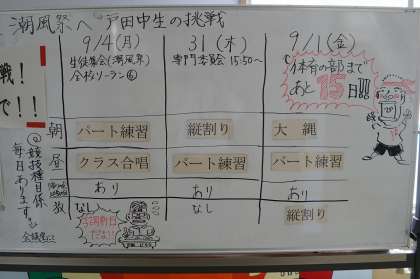 潮風祭へ 戸田中生の挑戦
9/4(月)
生徒集会(潮風祭)
全校ソーラン⑥
31(木)
専門委員会 15:50〜
9/1(金)
体育の部まで
あと15日!!!
戦!
で!!
朝 パート練習 縦割り 大縄
昼 クラス合唱 パート練習 パート練習
あり あり あり
放 なし なし 縦割り
◎競技種目係
毎日あります。